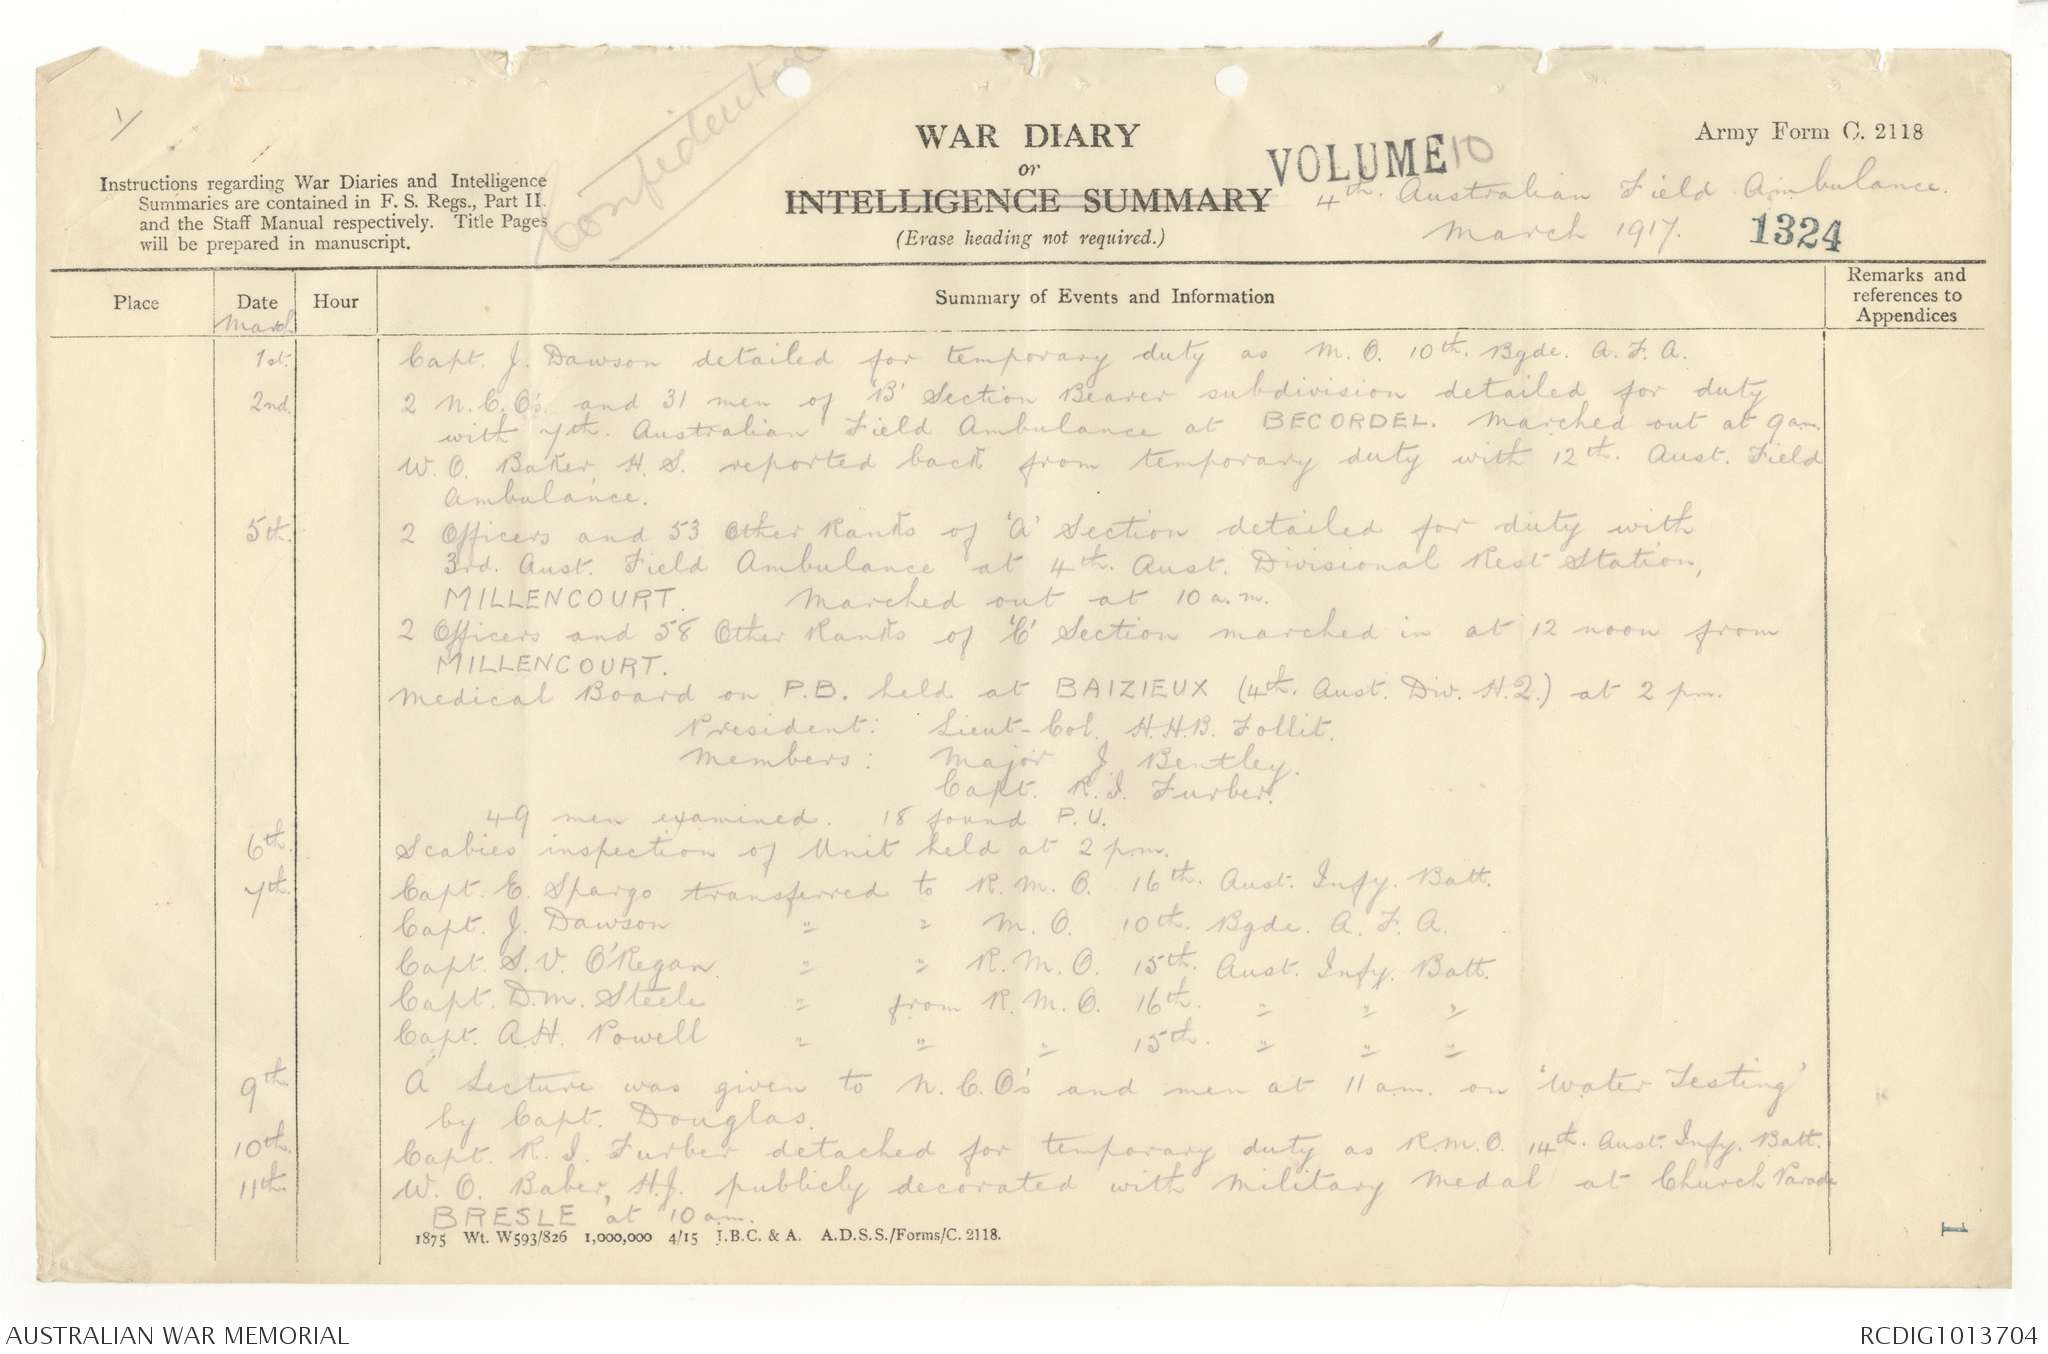 Confidential
WAR DIARY
or
INTELLIGENCE SUMMARY
(Erase heading not required.)
VOLUME 10
Army Form C. 2118
4th. Australian Field Ambulance.
March 1917.
1324
Instructions regarding War Diaries and Intelligence
Summaries are contained in F. S. Regs., Part II.
and the Staff Manual respectively. Title Pages
will be prepared in manuscript.
Place
Date
Hour
Summary of Events and Information
Remarks and
references to
Appendices
March
1st. Capt. J. Dawson detailed for temporary duty as M. O. 10th. Bgde. A. F. A.
2nd. 2 N. C. O's. and 31 men of 'B' Section Bearer subdivision detailed for duty
with 7th. Australian Field Ambulance at BECORDEL. Marched out at 9 am.
W. O. Baker, H. S. reported back from temporary duty with 12th. Aust. Field
Ambulance.
5th. 2 Officers and 53 Other Ranks of 'A' Section detailed for duty with
3rd. Aust. Field Ambulance at 4th. Aust. Divisional Rest Station,
MILLENCOURT. Marched out at 10 a.m.
2 Officers and 58 Other Ranks of 'C' Section marched in at 12 noon from
MILLENCOURT.
Medical Board on P.B. held at BAIZIEUX (4th. Aust. Div. H.Q.) at 2 p.m.
President: Lieut-Col. H.H.B. Follit.
Members: Major J. Bentley.
Capt. R. I. Furber.
49 men examined. 18 found P.U.
6th. Scabies inspection of Unit held at 2 p.m.
7th. Capt. E. Spargo transferred to R. M. O. 16th. Aust. Infy. Batt.
Capt. J. Dawson " " M. O. 10th. Bgde. A. F. A.
Capt. S. V. O'Regan. " " R. M. O. 15th. Aust. Infy. Batt.
Capt. D.M. Steele " from R. M. O. 16th. " " "
Capt. A.H. Powell " " " 15th. " " "
9th. A lecture was given to N. C. O's and men at 11 a.m. on 'Water Testing'
by Capt. Douglas.
10th. Capt. R. I. Furber detached for temporary duty as R.M.O. 14th. Aust. Infy. Batt.
11th. W. O. Baber, H.J. publicly decorated with Military Medal at Church Parade
BRESLE at 10 a.m.
1875 Wt. W593/826 1,000,000 4/15 J.B.C. & A. A.D.S.S./Forms/C. 2118.
1
AUSTRALIAN WAR MEMORIAL
RCDIG1013704